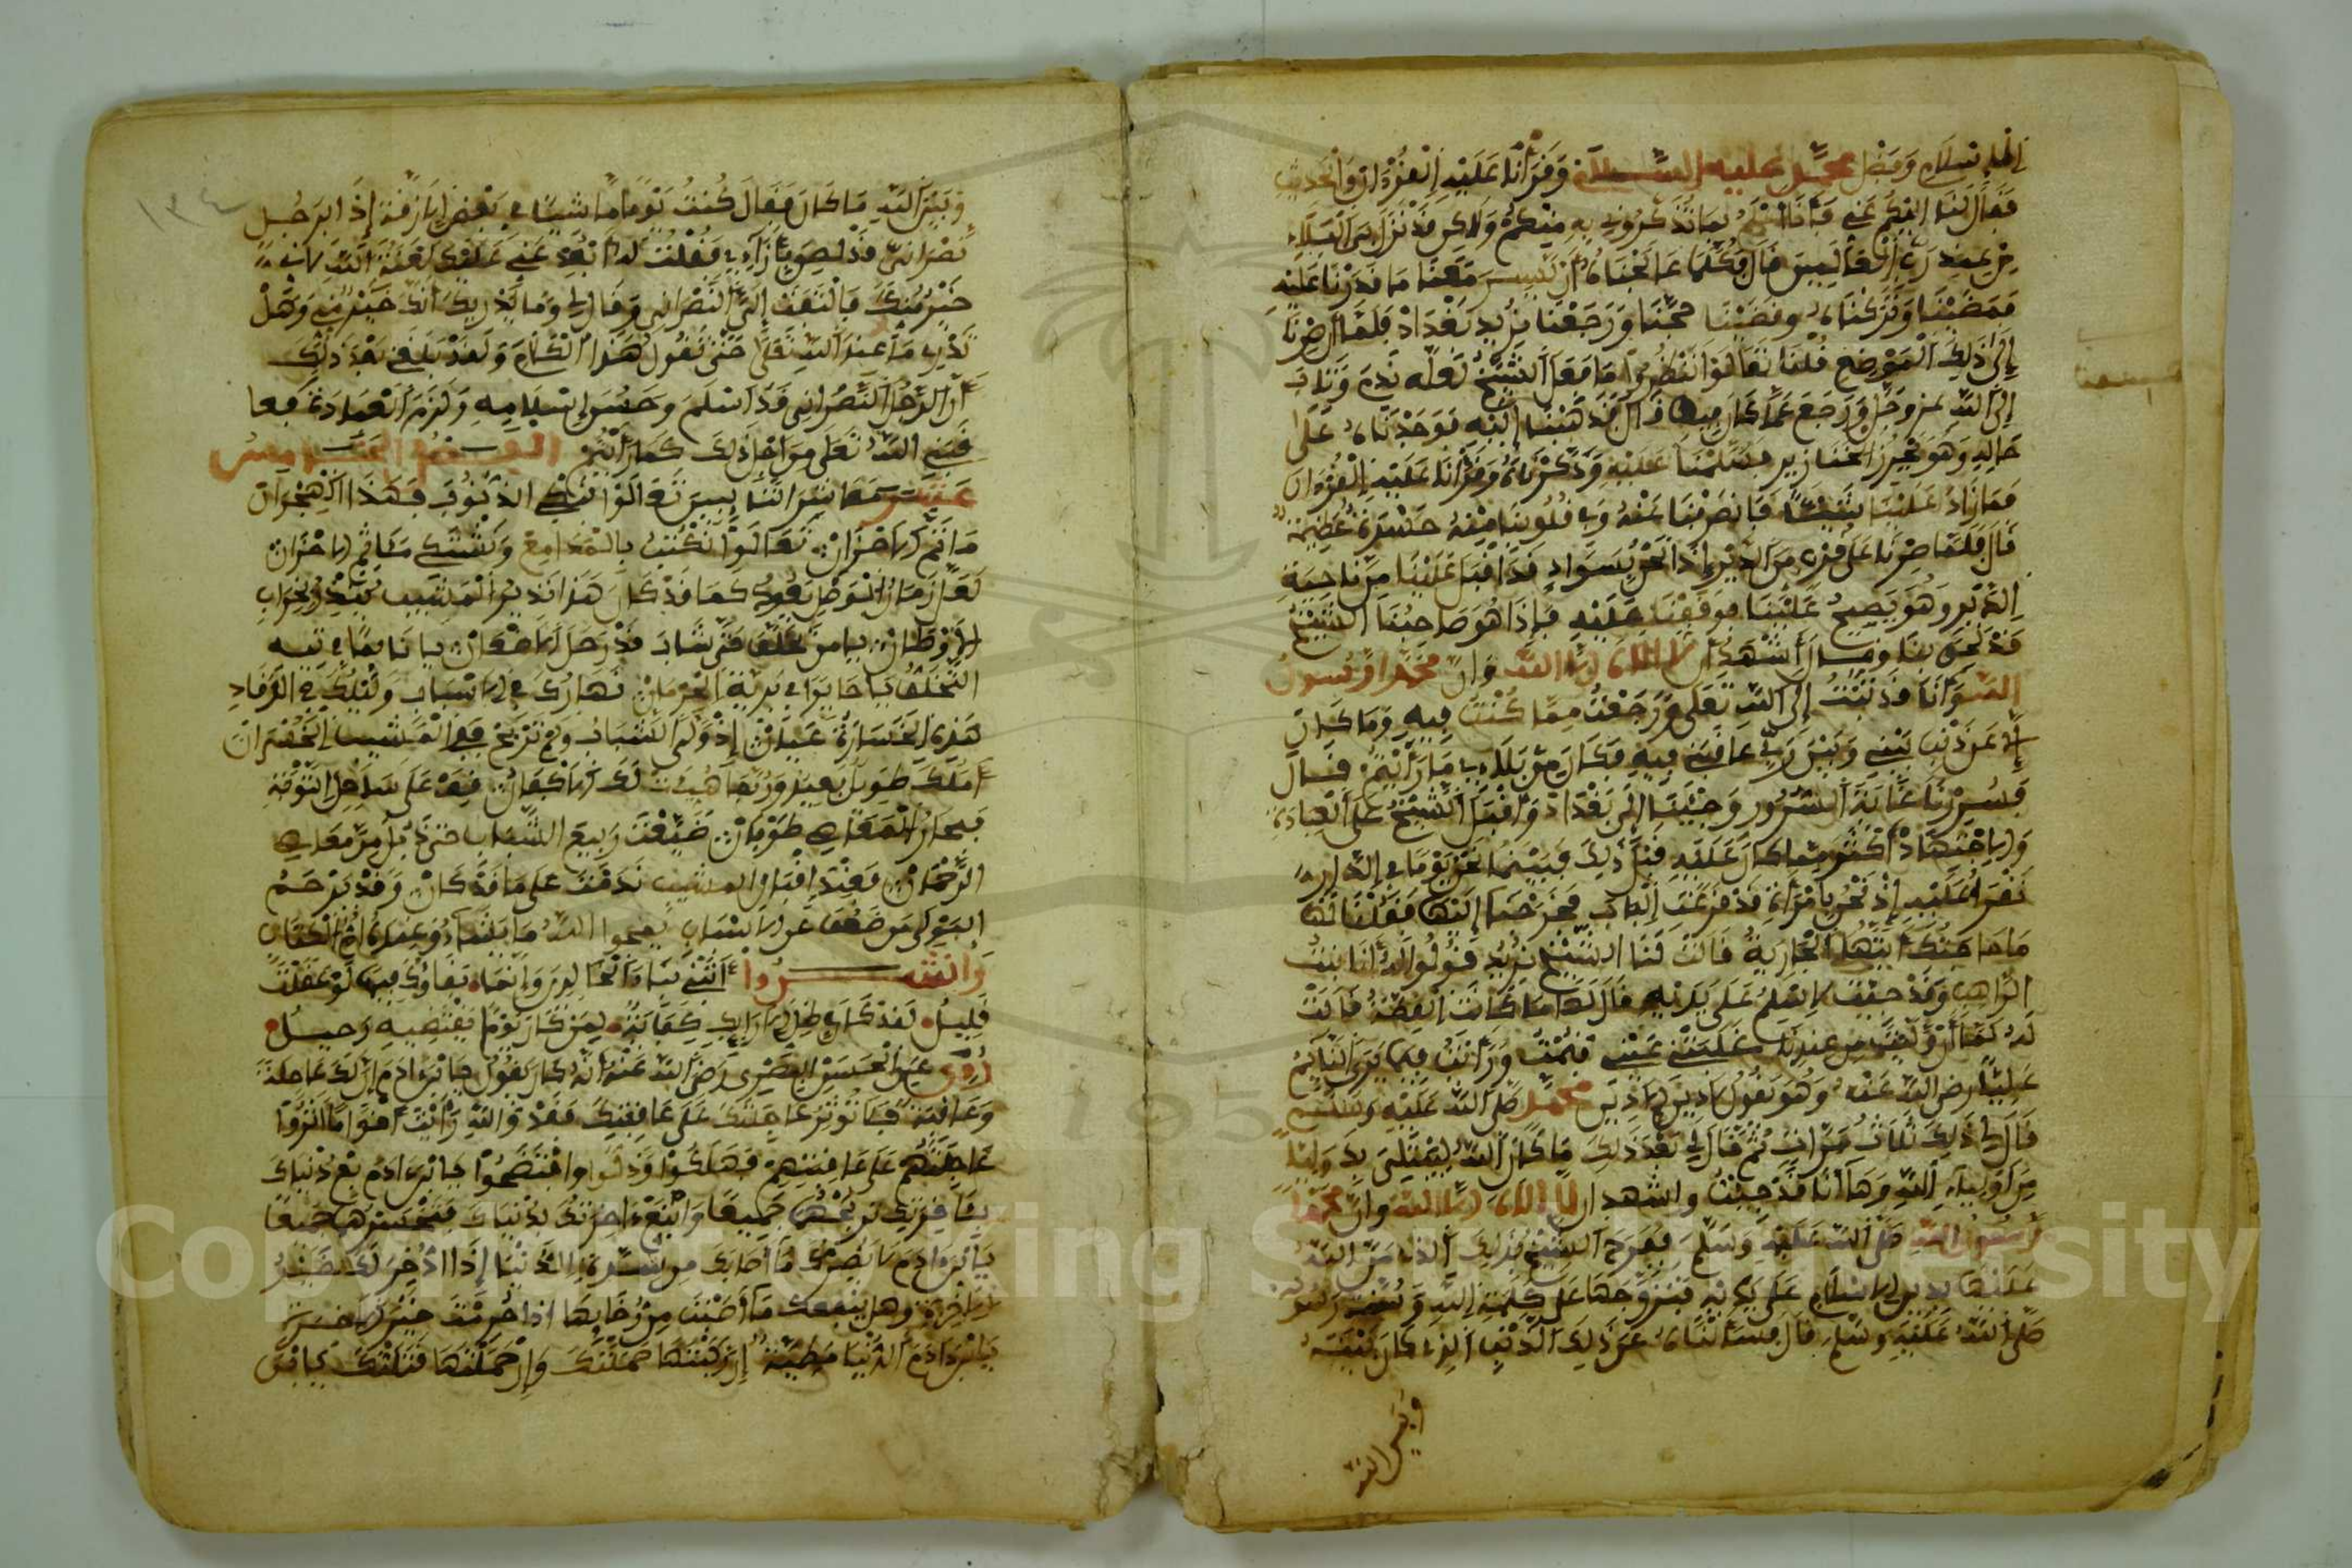 الاسلام وفضل محمد عليه السلام وقرأنا عليه القرءان والحديث
فقال لنا اليكم عني فأنا أعلم بما تذكروني به منكم ولاكن قد نزل بي البلاء
من عند رب العالمين قال فكلما عالجناه أن يسير معنا ما قدرنا عليه
فمضينا وتركناه وقضينا حجنا ورجعنا نريد بغداد فلما صرنا
إلى ذلك الموضع قلنا تعالوا ننظروا ما فعل الشيخ لعله ندم وتاب
إلى الله عز وجل ورجع عما كان فيه قال فذهبنا إليه فوجدناه على
حاله وهو يحرز الخنازير فسلمنا عليه وذكرناه وقرأنا عليه القرءان
فما زاد علينا شيئا فانصرفنا عنه وفي قلوبنا منه حسرة عظيمة
قال فلما صرنا على قرب من الدير إذا نحن بسواد قد أقبل علينا من ناحية
الدير وهو يصيح علينا فوقفنا عليه فإذا هو صاحبنا الشيخ
قد لحق بنا وقال أشهد أن لا إلاه إلا الله وان محمدا رسول
الله وأنا قد تبت إلى الله تعلى ورجعت مما كنت فيه وما كان
إلا عن ذنب بيني وبين ربي عاقبني فيه فكان من بلاءي ما رأيتم قال
فسررنا غاية السرور وجئنا إلى بغداد وأقبل الشيخ على العبادة
والاجتهاد أكثر مما كان عليه قبل ذلك فبينما نحن يوما في الدار
نقرأ عليه إذ نحن بامرأة قد قرعت الباب فخرجنا إليها فقلنا لها
ما حاجتك أيتها الجارية قالت لنا الشيخ نريد قولوا له أنا بنت
الراهب وقد جئت لاسلم على يديه قال لها ما كانت القصة قالت
له لما أن وليت من عندنا غلبتني عيني فنمت ورأيت فيما يرى النائم
عليا رضي الله عنه وهو يقول لا دين إلا دين محمد صلى الله عليه وسلم
قال لي ذلك ثلاث مرات ثم قال لي بعد ذلك ما كان الله ليبتلي به وليا
من أولياء الله وها أنا قد جئت واشهد ان لا إلاه إلا الله وان محمدا
رسول الله صلى الله عليه وسلم ففرح الشيخ بذلك الذي من الله
عليها بدين الاسلام على يديه فتزوجها على كلمة الله وسنة رسوله
صلى الله عليه وسلم قال فسألناه عن ذلك الذنب الذي كان بينه
وبين الله
وبين الله ما كان فقال كنت يوما ماشيا في بعض الازقة إذا برجل
نصراني قد لصق بازاءي فقلت له ابعد عني عليك لعنة الله لاني
خير منك فالتفت إلي النصراني وقال لي وما يدريك أنك خير مني وهل
تدري ما عند الله تعلى حتى تقول هذا الكلام ولقد بلغني بعد ذلك
أن الرجل النصراني قد اسلم وحسن إسلامه ولزم العبادة فعا
قبني الله تعلى من اجل ذلك كما رأيتم الفصل الخامس
عشر معاشر التائبين تعالوا نبكي الذنوب فهذا الهجران
مأتم الاحزان تعالوا نكتب بالمدامع ونشتكي مأثم الاحزان
لعل زمان الوصل يعود كما قد كان هذا نذير المشيب ينذر بخراب
الاوطان يا من تخلف حتى شاب قد رحل الاضعان يا تائها في تيه
التخلف يا حايرا في برية الحرمان نهارك في الاسباب وليلك في الرقاد
هذه الخسارة عيان إذ ولى الشباب ولم تربح ففي المشيب الخسران
أملك طويل بعيد وربما هيئت لك الاكفان قف على ساحل التوبة
فبحار المعاصي طوفان ضيعت ربيع الشباب حتى ذبل من معاصي
الرحمان فعند اقبال المشيب ندمت على ما قد كان وقد يرحم
المولى من ضعف عن الاسباب يمحوا الله ما يشاء وعنده أم الكتاب
وانشدوا أتبني بناء الخالدين وإنما بقاؤك فيها لو عقلت
قليل لقد كان في ظل الاراك كفاية لمن كان يوما يقتضيه رحيل
روي عن الحسن البصري رضي الله عنه أنه كان يقول يا ابن ءادم إن لك عاجلة
وعاقبة فلا توثر عاجلتك على عاقبتك فقد والله رأيت أقواما آثروا
عاجلتهم على عاقبتهم فهلكوا وذلوا وافتضحوا يا ابن ءادم بع دنياك
بآخرتك تربحهما جميعا ولا تبع ءاخرتك بدنياك فتخسرهما جميعا
يا ابن ءادم لا يضرك ما أصابك من شدة الدنيا إذا ادخر لك خير
الاخرة وهل ينفعك ما أصبت من رخايها اذا حرمت خير الاخرة
يا ابن ءادم الدنيا مطية إن ركبتها حملتك وإن حملتها قتلتك يا ابن
Copyright King Saud University